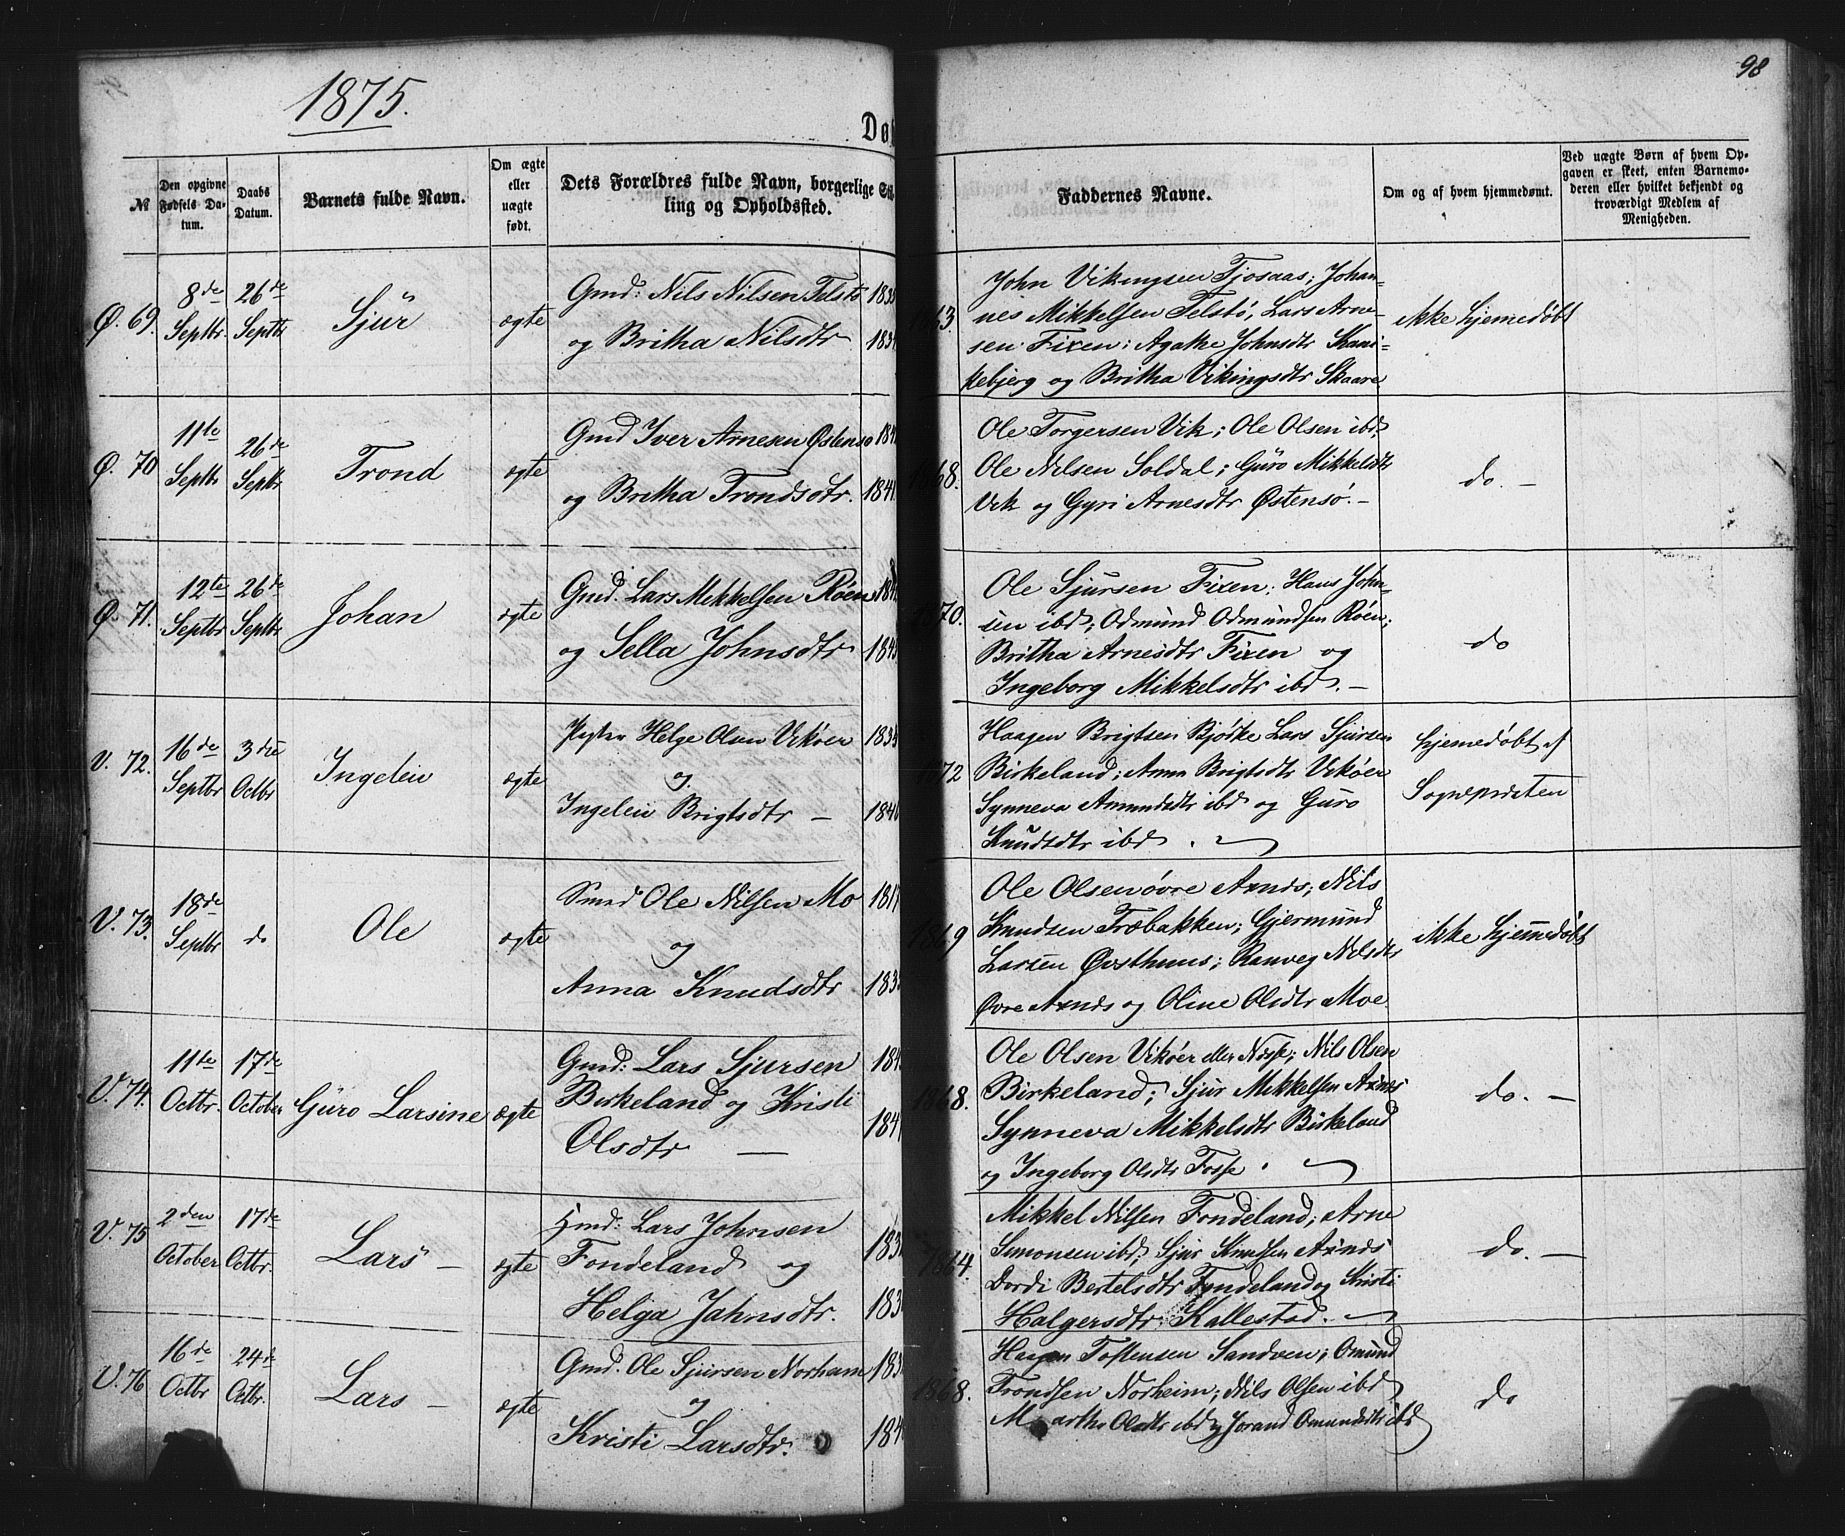 1875.
98
Dø
№
Den opgivne Fødsels Da-
tum.
Daabs
Datum.
Barnets fulde Navn.
Om ægte
eller
uægte
født.
Dets Forældres fulde Navn, borgerlige Stil-
ling og Opholdssted.
Faddernes Navne.
Om og af hvem hjemmedøbt.
Ved uægte Børn af hvem Op-
gaven er skeet, enten Barnemo-
deren eller hvilket bekjendt og
troværdigt Medlem af
Menigheden.
Ø. 69.
8de
Septbr.
26de
Septbr
Sjur
ægte
Gmd: Nils Nilsen Telstø
og Britha Nilsdtr
1863.
John Vikingsen Tjosaas; Johan-
nes Mikkelsen Telstø, Lars Arne-
sen Fixen; Agathe Johnsdtr Kani-
kebjerg og Britha Vikingsdtr Skaare
ikke hjemedøbt
Ø. 70
11te
Septbr
26de
Septbr
Trond
ægte
Gmd Iver Arnesen Østensø
og Britha Trondsdtr.
1868.
Ole Torgersen Vik; Ole Olsen ibd;
Ole Nilsen Soldal; Guro Mikkelsdtr
Vik og Gyri Arnesdtr Østensø. -
do. -
Ø. 71.
12te
Septbr
26de
Septbr
Johan
ægte
Gmd. Lars Mikkelsen Røen
og Sella Johnsdtr
1870.
Ole Sjursen Fixen; Hans John-
sen ibd; Odmund Odmundsen Røen;
Britha Arnesdtr Fixen og
Ingeborg Mikkelsdtr ibd. -
do
V. 72.
16de
Septbr
3die
Octbr
Ingeleiv
ægte
Helge Olsen Vikøer
og
Ingeleiv Brigtsdtr -
1872
Haagen Brigtsen Bjørke Lars Sjursen
Birkeland; Anna Brigtsdtr Vikøer
Synneva Amundsdtr ibd og Guro
Knudsdtr ibd.
hjemedøbt af
Sognepresten
V. 73.
18de
Septbr
do
Ole
ægte
Smed Ole Nilsen Mo
og
Anna Knudsdtr.
1869
Ole Olsen øvre Axnes; Nils
Knudsen Træbakken; Gjermund
Larsen Øvsthuus; Ranveg Nilsdtr
Øvre Axnes og Oline Olsdtr Moe
ikke hjemmedøbt
V. 74.
11te
Octbr.
17de
October
Guro Larsine
ægte
Gmd: Lars Sjursen
Birkeland og Kristi
Olsdtr -
1868.
Ole Olsen Vikøer eller Nesse; Nils Olsen
Birkeland; Sjur Mikkelsen Axnes
Synneva Mikkelsdtr Birkeland
og Ingeborg Olsdtr Fosse.
do. -
V. 75
2den
October
17de
Octbr.
Lars -
ægte
Hmd: Lars Johnsen
Fondeland og
Helga Jahnsdtr.
1864.
Mikkel Nilsen Fondeland; Arne
Simonsen ibd; Sjur Knudsen Axnes
Dordi Bertelsdtr Fondeland og Kristi
Holgersdtr Kallestad.
do. -
V. 76
16de
Octbr
24de
Octbr.
Lars -
ægte
Gmd. Ole Sjursen Norheim
og
Kristi Larsdtr.
1868.
Haagen Tostensen Sandven; Omund
Trondsen Norheim; Nils Olsen ibd
Martha Olsdtr ibd og Jorand Omundsdtr ibd
do